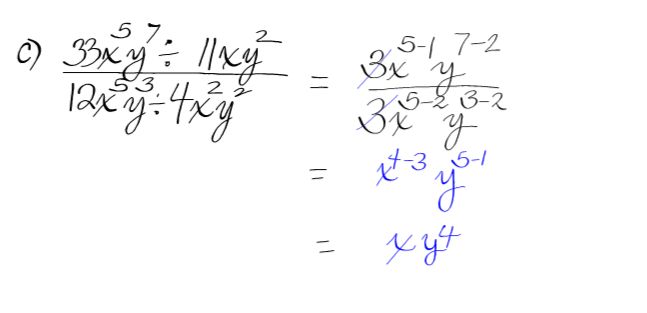 c) 33x⁵y⁷ ÷ 11xy² / 12x⁵y³ ÷ 4x²y² = 3x⁵⁻¹y⁷⁻² / 3x⁵⁻²y³⁻²
= x⁴⁻³ y⁵⁻¹
= xy⁴